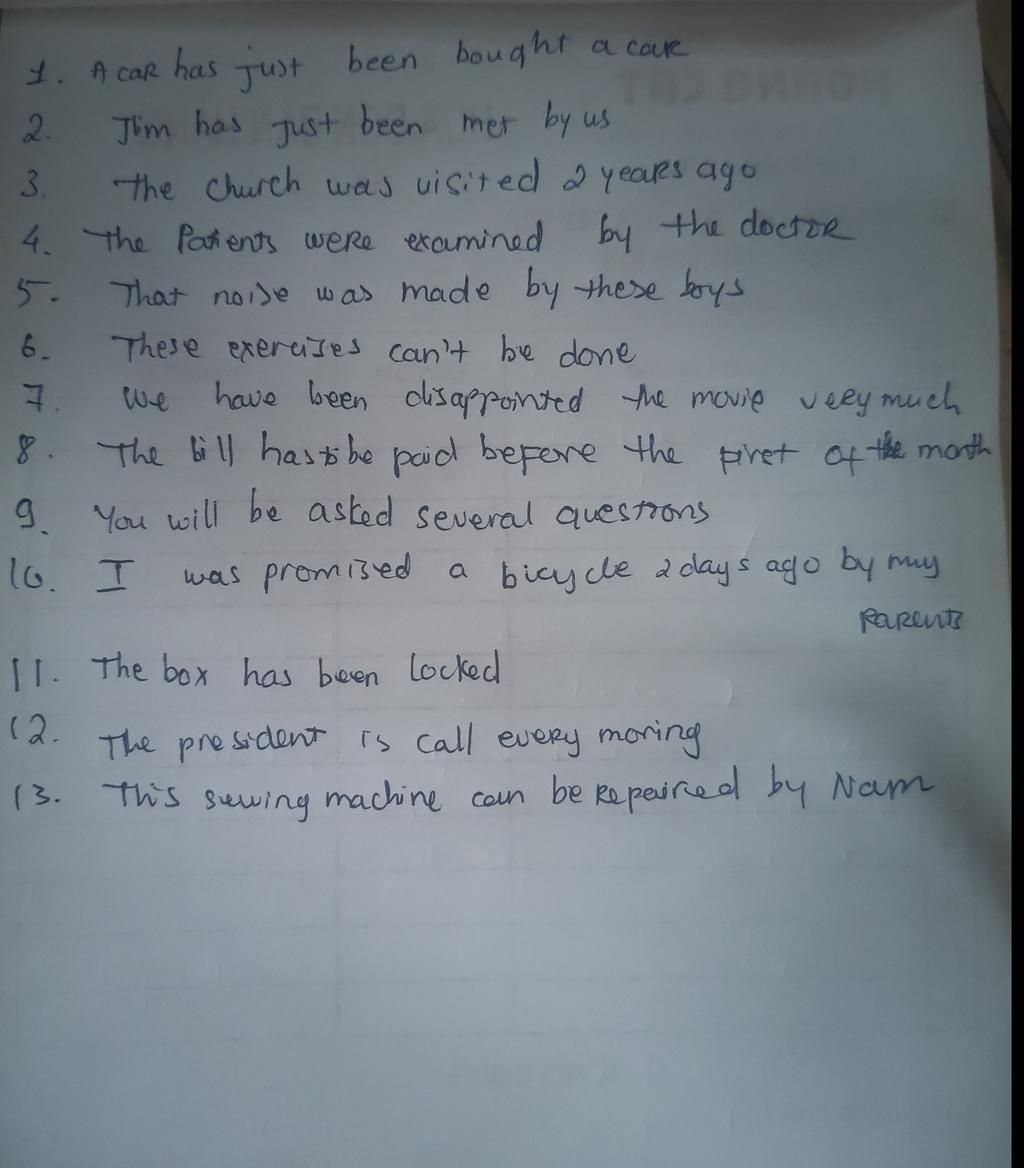 1. A car has just been bought a car
2. Jim has just been met by us
3. The church was visited 2 years ago
4. The Patients were examined by the doctor
5. That noise was made by these boys
6. These exercises can't be done
7. We have been disappointed the movie very much
8. The bill has to be paid before the first of the month
9. You will be asked several questions
10. I was promised a bicycle 2 days ago by my
parents
11. The box has been locked
12. The president is call every moring
13. This sewing machine can be repaired by Nam